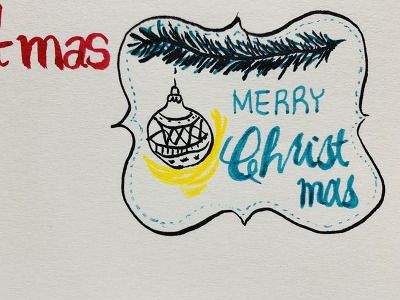 tmas
MERRY
Christ
mas